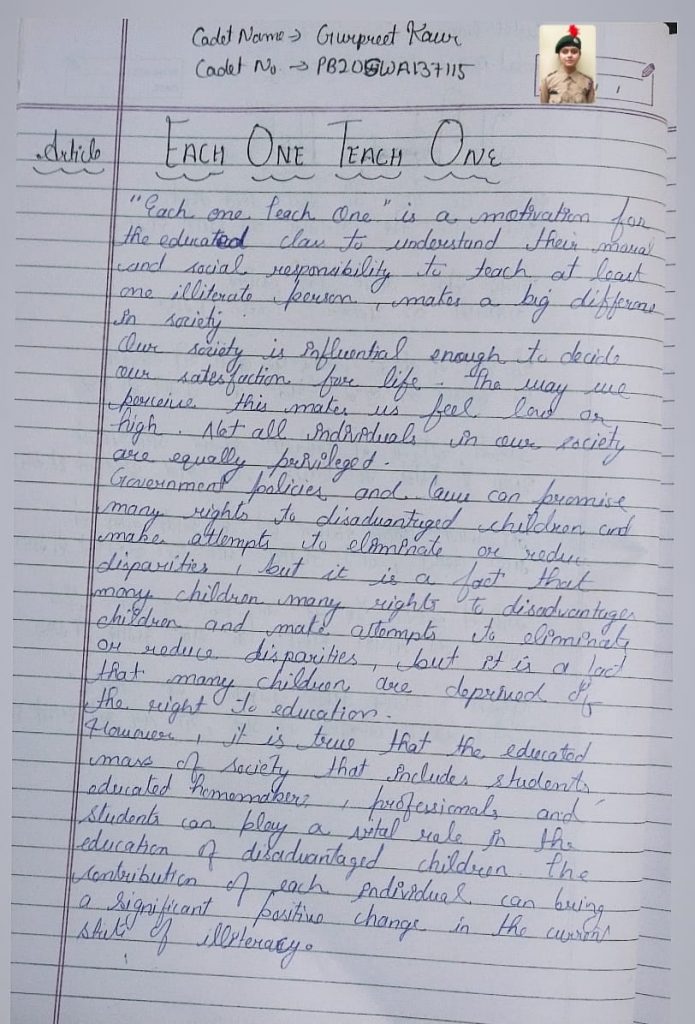 Cadet Name → Gurpreet Kaur
Cadet No → PB20SWA137115
Article EACH ONE TEACH ONE
"Each one teach one" is a motivation for
the educated class to understand their moral
and social responsibility to teach at least
one illiterate person, makes a big differens
in society
Our society is influential enough to decide
our satesfaction for life. The way we
perceive this makes us feel low or
high. Not all individuals in our society
are equally privileged.
Government policies and laws can promise
many rights to disadvantaged children and
make attempts to eliminate or reduce
disparities, but it is a fact that
many children many rights to disadvantages
children and make attempts to eliminate
or reduce disparities, but it is a fact
that many children are deprived of
the right to education.
However, it is true that the educated
mass of society that includes students,
educated homemakers, professionals and
students can play a vital role in the
education of disadvantaged children. The
contribution of each individual can bring
a significant positive change in the current
state of illiteracy.